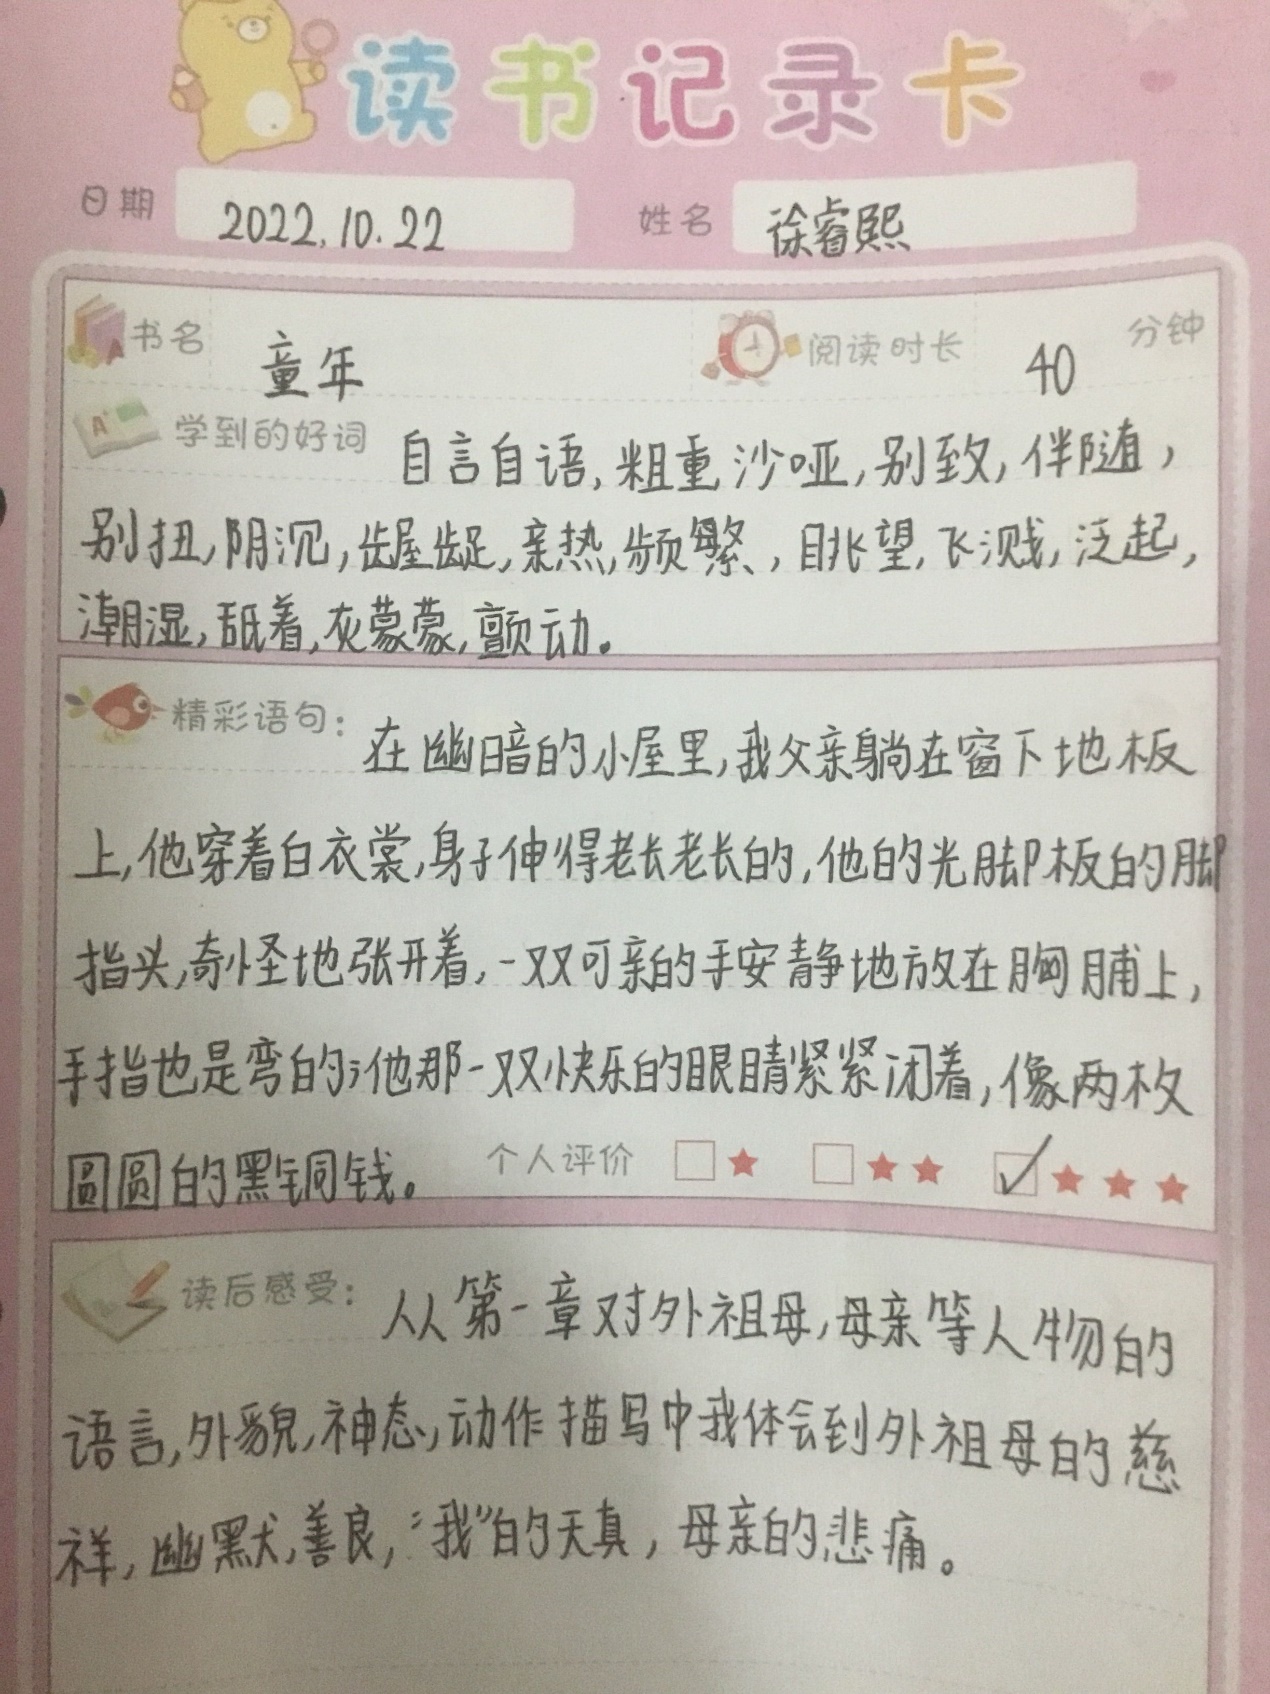 读书记录卡
日期 2022.10.22 姓名 徐睿熙
书名 童年 阅读时长 40 分钟
学到的好词 自言自语,粗重,沙哑,别致,伴随,
别扭,阴沉,龌龊,亲热,频繁,眺望,飞溅,泛起,
潮湿,舐着,灰蒙蒙,颤动。
精彩语句: 在幽暗的小屋里,我父亲躺在窗下地板
上,他穿着白衣裳,身子伸得老长老长的,他的光脚板的脚
指头,奇怪地张开着,一双可亲的手安静地放在胸脯上,
手指也是弯的;他那一双快乐的眼睛紧紧闭着,像两枚
圆圆的黑铜钱。 个人评价
读后感受: 从第一章对外祖母,母亲等人物的
语言,外貌,神态,动作描写中我体会到外祖母的慈
祥,幽默,善良,“我”的天真,母亲的悲痛。